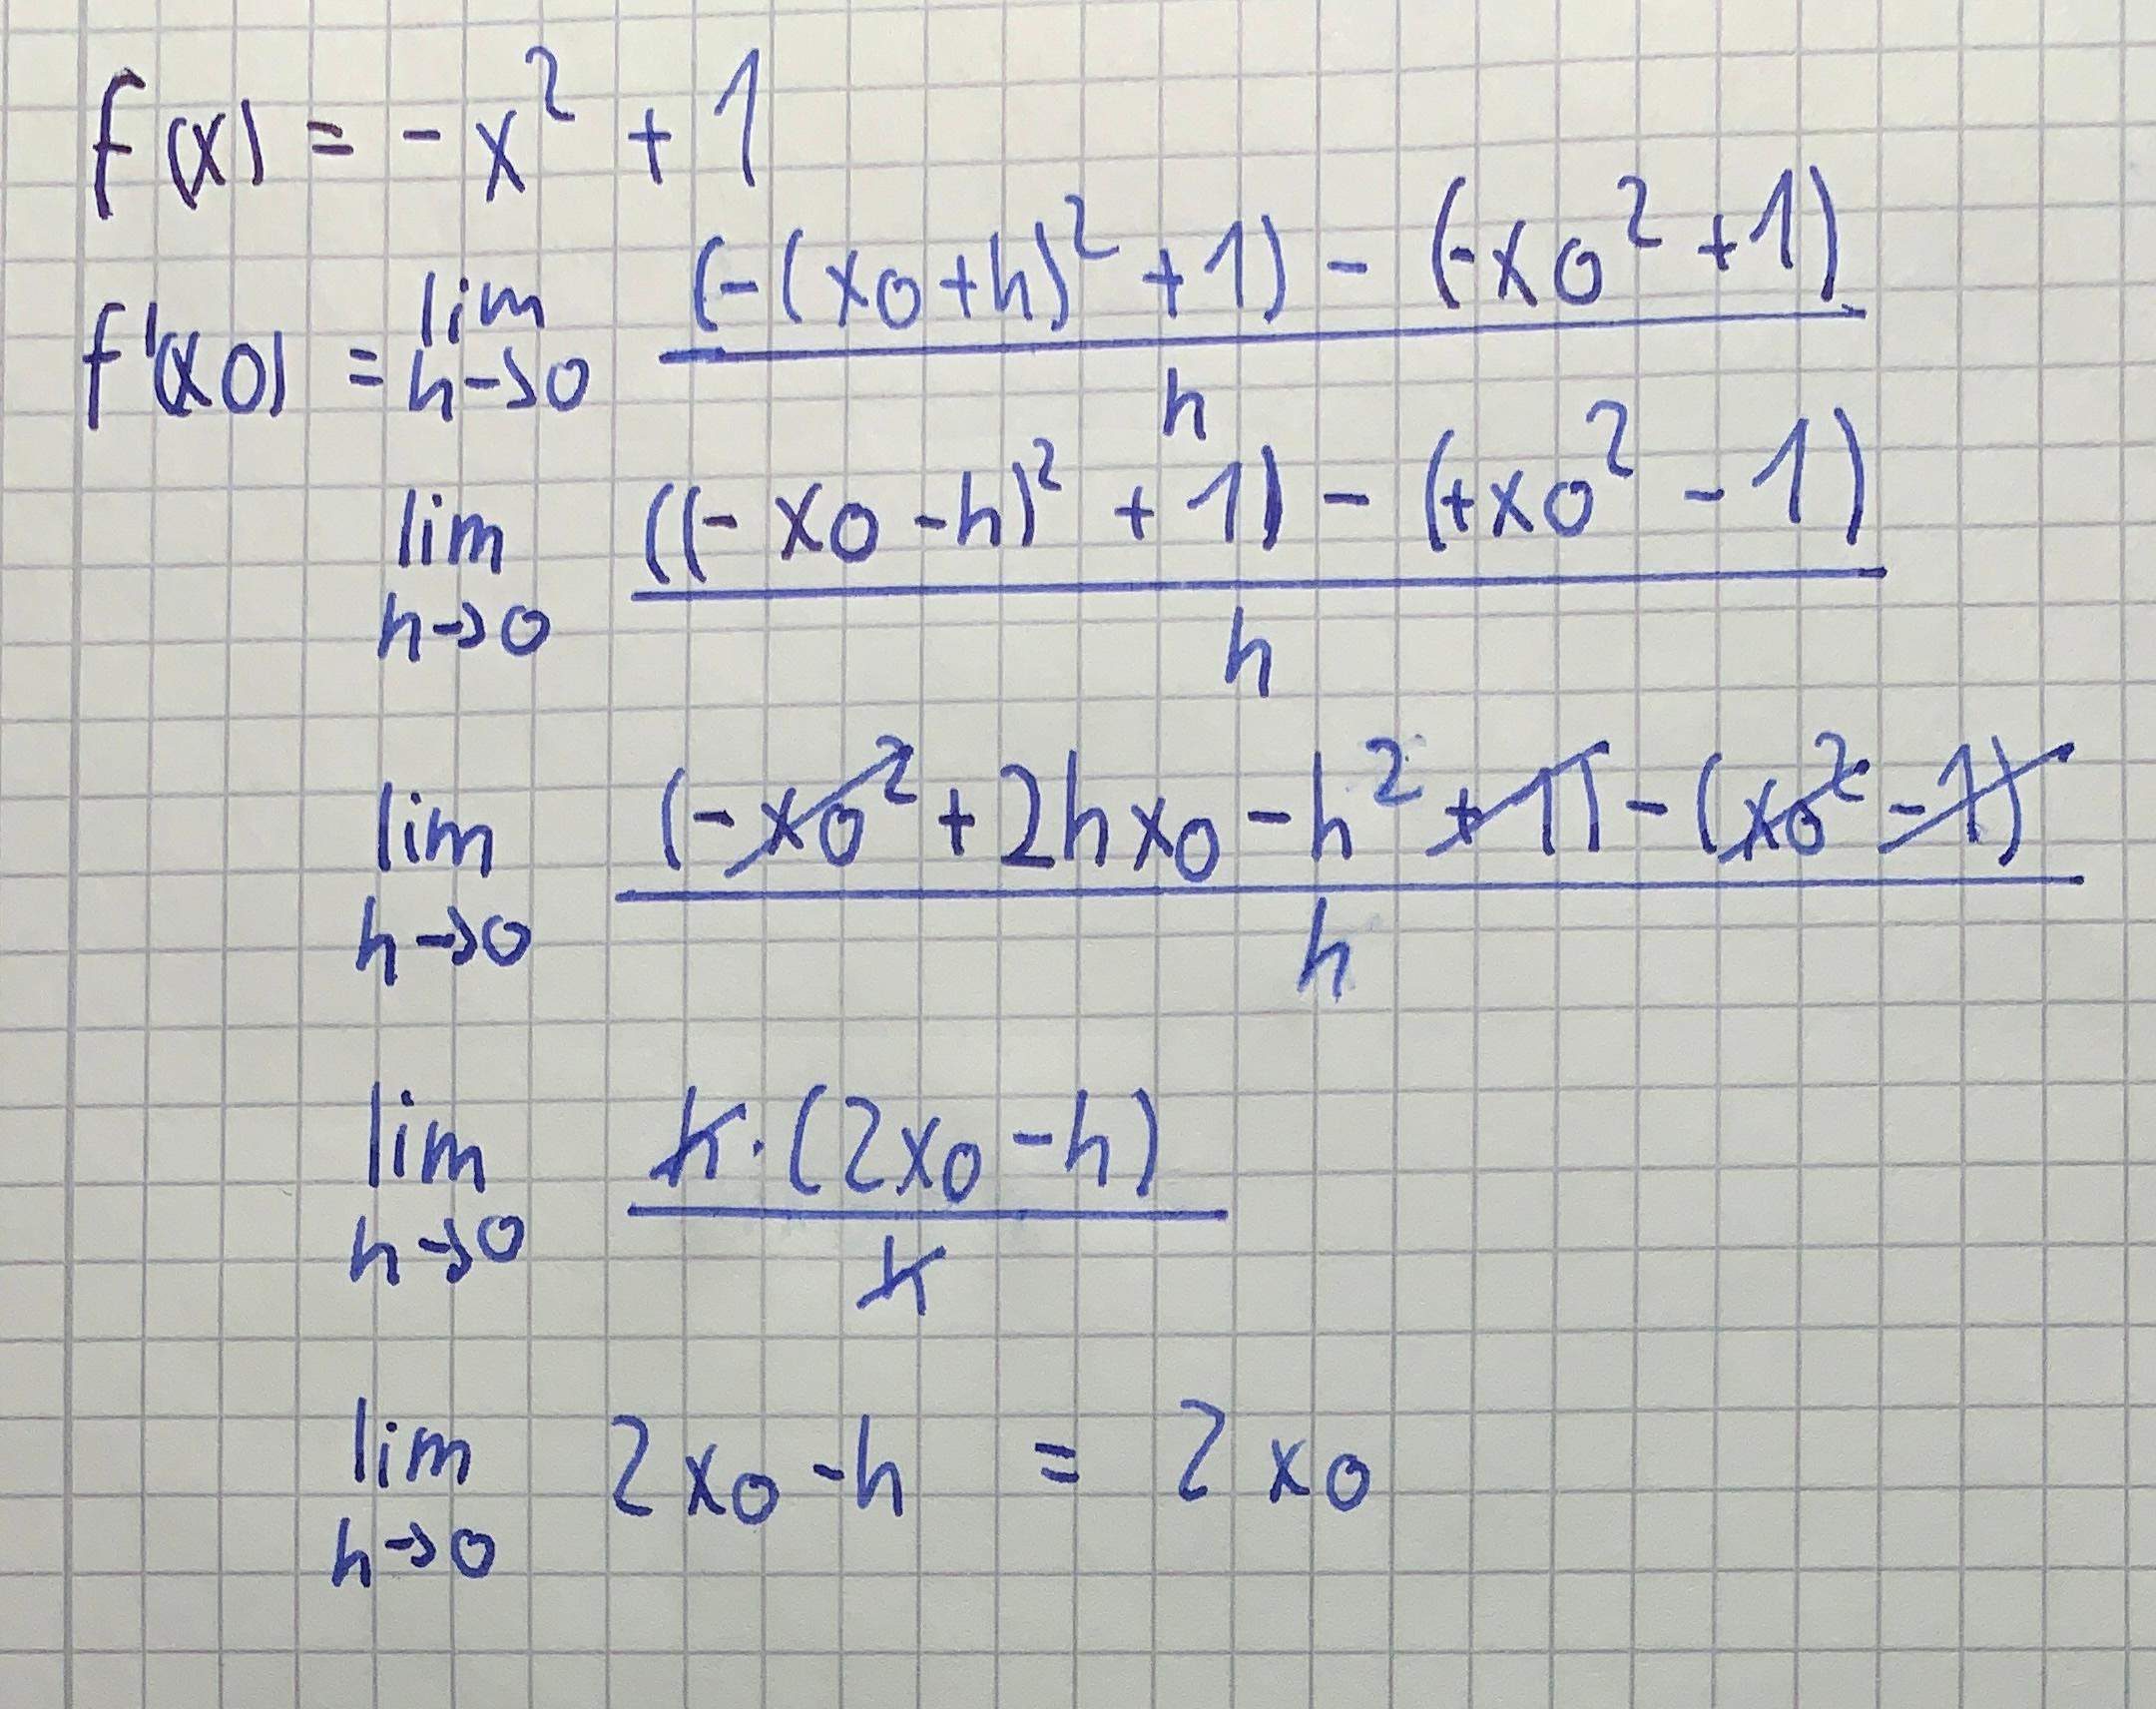 f(x) = -x² + 1
f'(x0) = lim h→0 ((-(x0+h)² + 1) - (-x0² + 1)) / h
lim h→0 (((-x0-h)² + 1) - (+x0² - 1)) / h
lim h→0 ((-x0² + 2hx0 - h² + 1) - (x0² - 1)) / h
lim h→0 h·(2x0-h) / h
lim h→0 2x0-h = 2x0